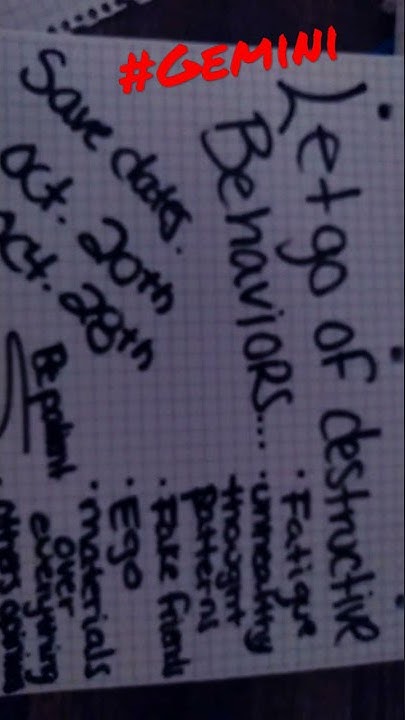 #GEMINI
Let go of destructive
Behaviors...
• Fatigue
• unhealthy
thought
patterns
• Fake friends
• Ego
• materials
over
everything
• others opinions
Save dates.
Oct. 20th
Oct. 28th
Be patient